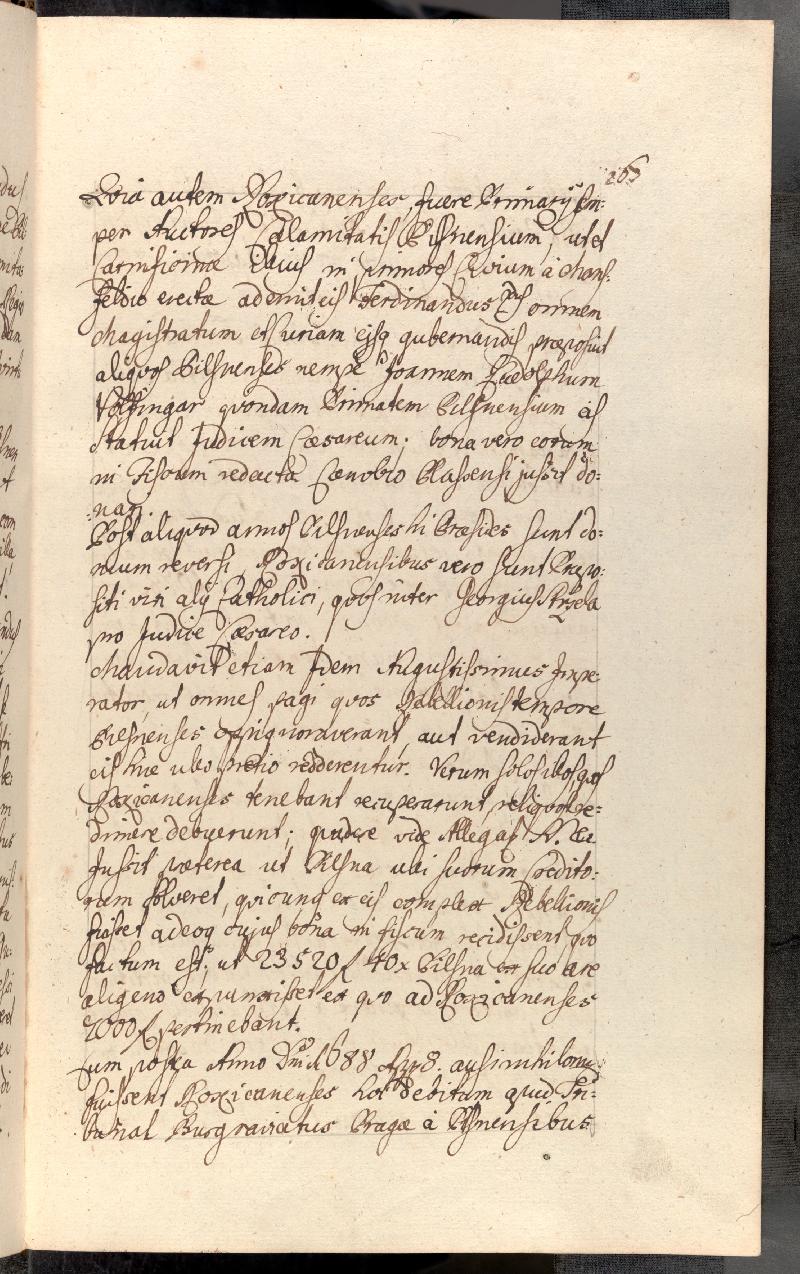 263
Quia autem Roxicanenses, fuere Primarij sem-
per Auctores Calamitatis Pilsnensium, ut et
Carnificinæ in primores Civium à Mans-
feldio erectæ ademit eis Ferdinandus 2dus omnem
Magistratum et Curiam eisq gubernandis præposuit
aliquos Pilsnenses nempe Joannem Ludolphum
quondam Primatem Pilsnensium ac
statuit Judicem Cæsareum; bona vero eorum
in Fiscum redacta Cænobio Plassensi jussit do-
nari.
Post aliquod annos Pilsnenses hi Præsides sunt do-
mum reversi, Roxicanensibus vero sunt Præpo-
siti viri alij Catholici, quos inter Georgius Strzela
pro Judice Cæsareo.
Mandavit etiam Idem Augustissimus Impe-
rator, ut omnes pagi quos Rebellionis tempore
Pilsnenses oppignoraverant, aut vendiderant
eis sine ullo pretio redderentur. Verum solos illos quos
Roxicanenses tenebant recuperarunt, reliquos re-
dimere debuerunt; qua de re vide Allegat
Jussit præterea ut Pilsna uni suorum Credito-
rum solveret, quicunq ex eis complex Rebellionis
fuisset adeoq cujus bona in fiscum recidissent quo
factum est, ut 23520 f 40 x Pilsna ex suo ære
alieno expunxisset ex quo ad Roxicanenses
2000 f pertinebant.
Cum postea Anno Dni 1688 ausi nihilomi-
fuissent Roxicanenses hoc debitum apud Tri-
bunal Burgraviatus Pragæ à Pilsnensibus